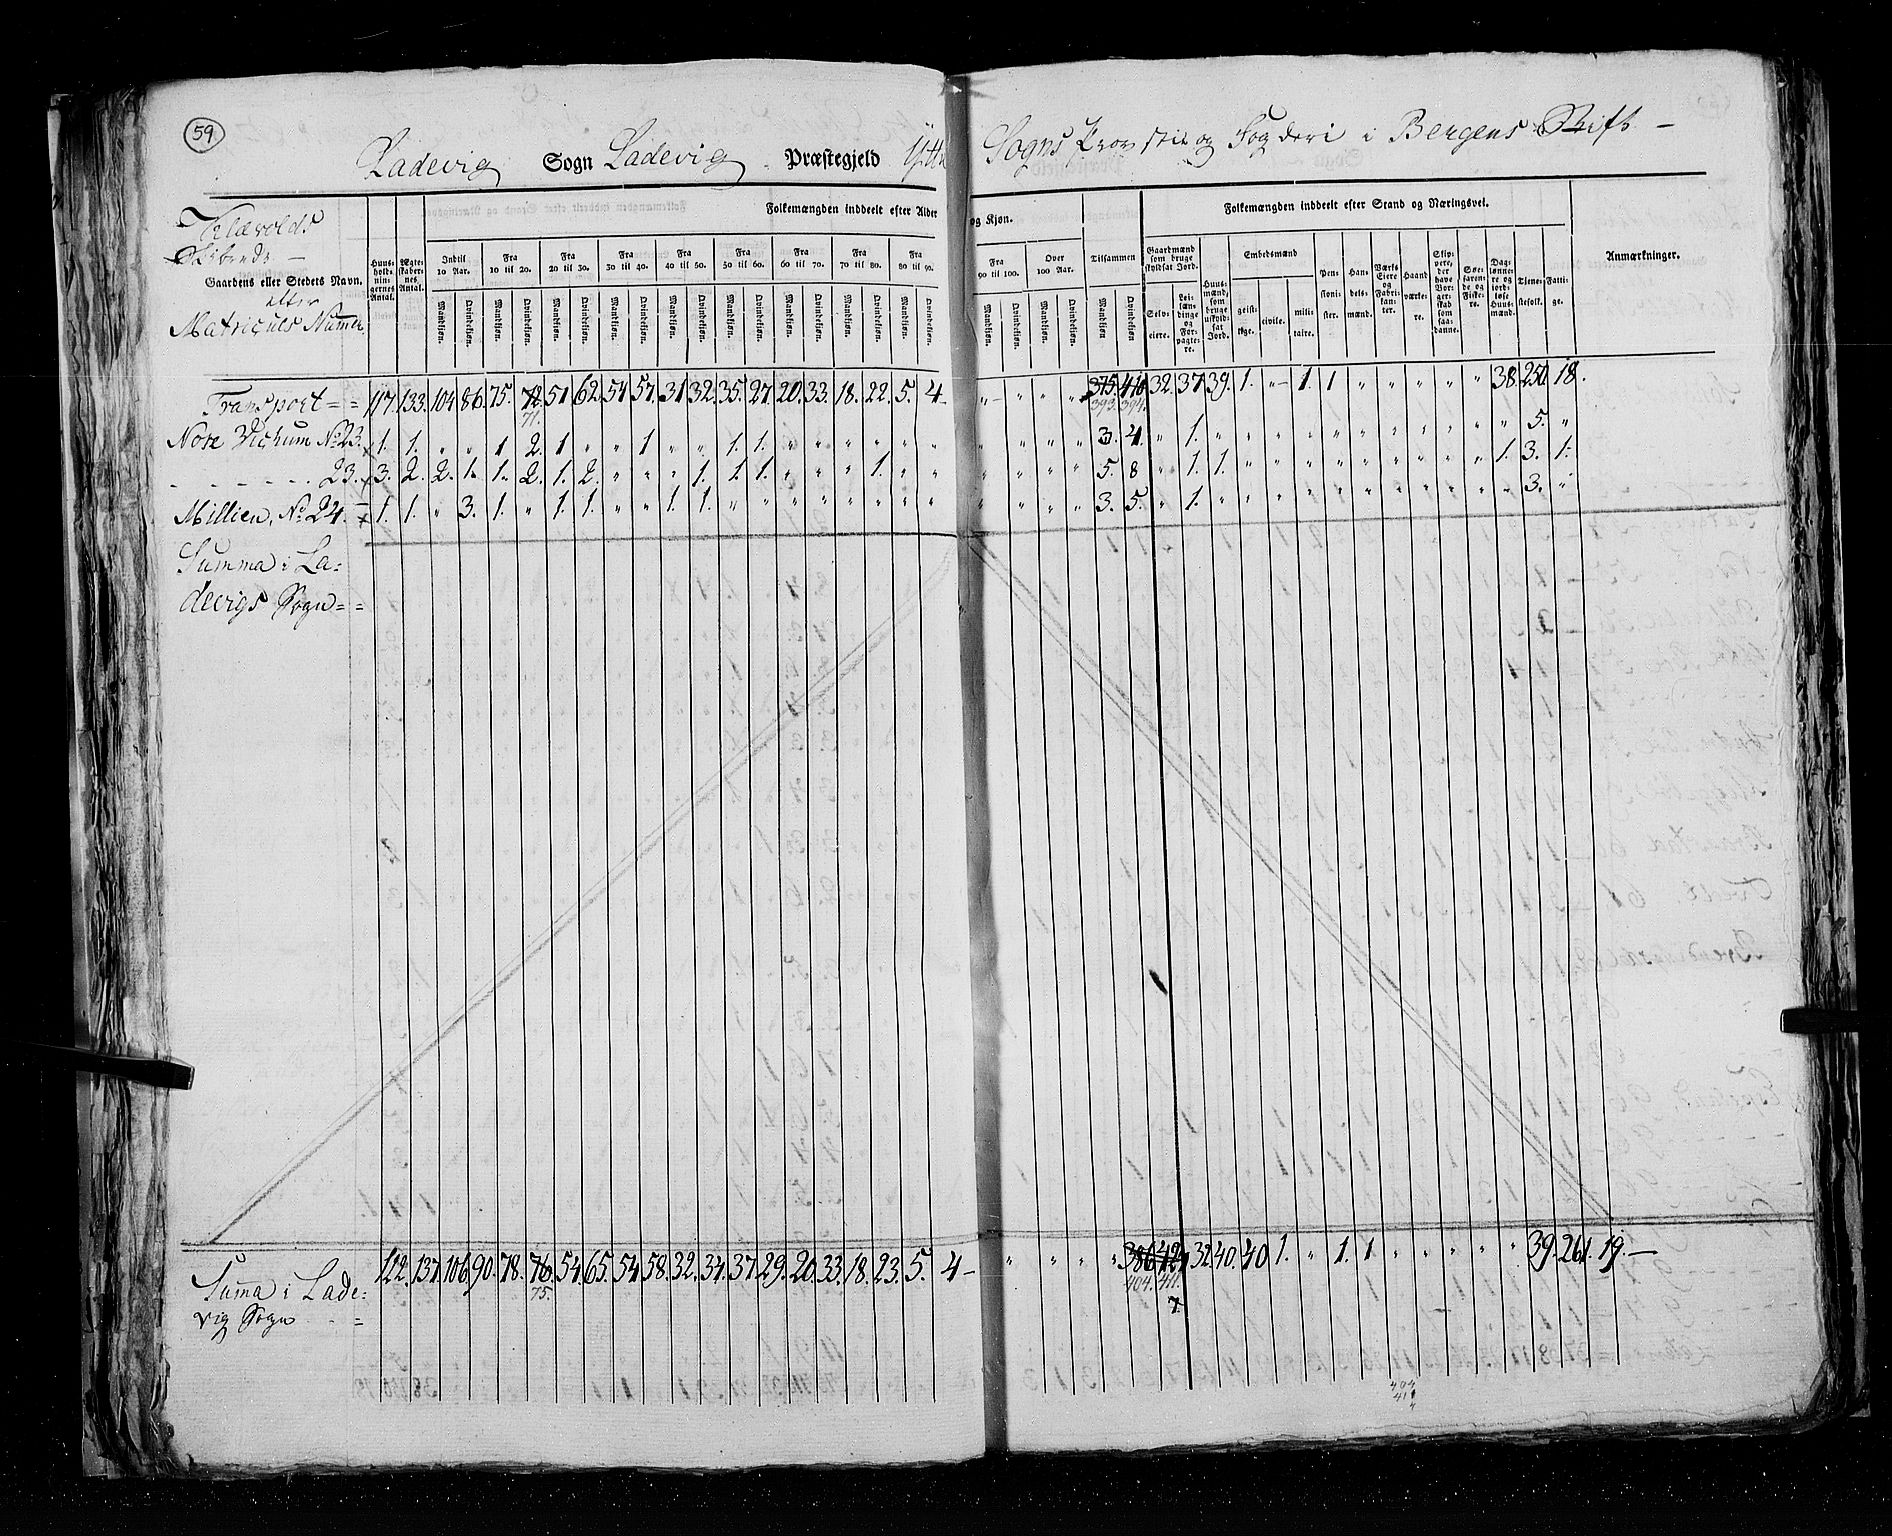 59
Ladevig Sogn Ladevig Præstegjeld Yttre Sogns Provstie og Fogderi i Bergens Stift
Klævolds
Skibrede
Gaardens eller Stedets Navn.
efter
Matriculs Numer
Huusholdningernes Antal.
Ægteskabernes Antal.
Folkemængden inddeelt efter Alder og Kjøn.
Indtil 10 Aar. Fra 10 til 20. Fra 20 til 30. Fra 30 til 40. Fra 40 til 50. Fra 50 til 60. Fra 60 til 70. Fra 70 til 80. Fra 80 til 90. Fra 90 til 100. Over 100 Aar. Tilsammen
Mandkjøn. Qvindekjøn. Mandkjøn. Qvindekjøn. Mandkjøn. Qvindekjøn. Mandkjøn. Qvindekjøn. Mandkjøn. Qvindekjøn. Mandkjøn. Qvindekjøn. Mandkjøn. Qvindekjøn. Mandkjøn. Qvindekjøn. Mandkjøn. Qvindekjøn. Mandkjøn. Qvindekjøn. Mandkjøn. Qvindekjøn. Mandkjøn. Qvindekjøn.
Folkemængden inddeelt efter Stand og Næringsvei.
Gaardmænd som bruge skyldsat Jord.
Selveiere. Leilændinge og Forpagtere.
Huusmænd, som bruge uskyldsat Jord.
Embedsmænd
geistlige. civile. militaire.
Pensionister.
Handelsmænd.
Værks Eiere og Fabrikanter.
Haandværkere.
Skippere, der have Borgerskab som saadanne.
Søefarende og Fiskere.
Daglønnere og jordløse Huusmænd.
Tjenestefolk.
Fattige.
Anmærkninger.
Transport = = 117. 133. 104. 86. 75. 72. 51. 62. 54. 57. 31. 32. 35. 27. 20. 33. 18. 22. 5. 4 - " - " " " 375. 410 32. 37. 39. 1. " 1. 1 " " " " " 38. 250. 18.
71. 393. 394.
Nore Vichum No 23. 1. 1. " " 1 2. 1 " " 1. " " 1. 1. " " " " " " " " " " 3. 4. " 1. " " " " " " " " " " " 5. "
- - - - - - 23. 3. 2. 2. 1. 1. 2. 1. 2. " " " 1. 1. 1. " " " 1. " " " " " " 5. 8 " 1. 1. " " " " " " " " " 1. 3. 1.
Millien, No 24. 1. 1. " 3. 1. " 1. 1. " " 1. 1. " " " " " " " " " " " " 3. 5. " 1. " " " " " " " " " " " 3. "
Summa i La=
devigs Sogn = =
Suma i Lade= 122. 137. 106. 90. 78. 76. 54. 65. 54. 58. 32. 34. 37. 29. 20. 33. 18. 23. 5. 4 - " " " " 386. 424 32. 40. 40 1. " 1. 1 " " " " " 39. 261. 19. -
vig Sogn - - = 75. 404. 411.
7.
404
411